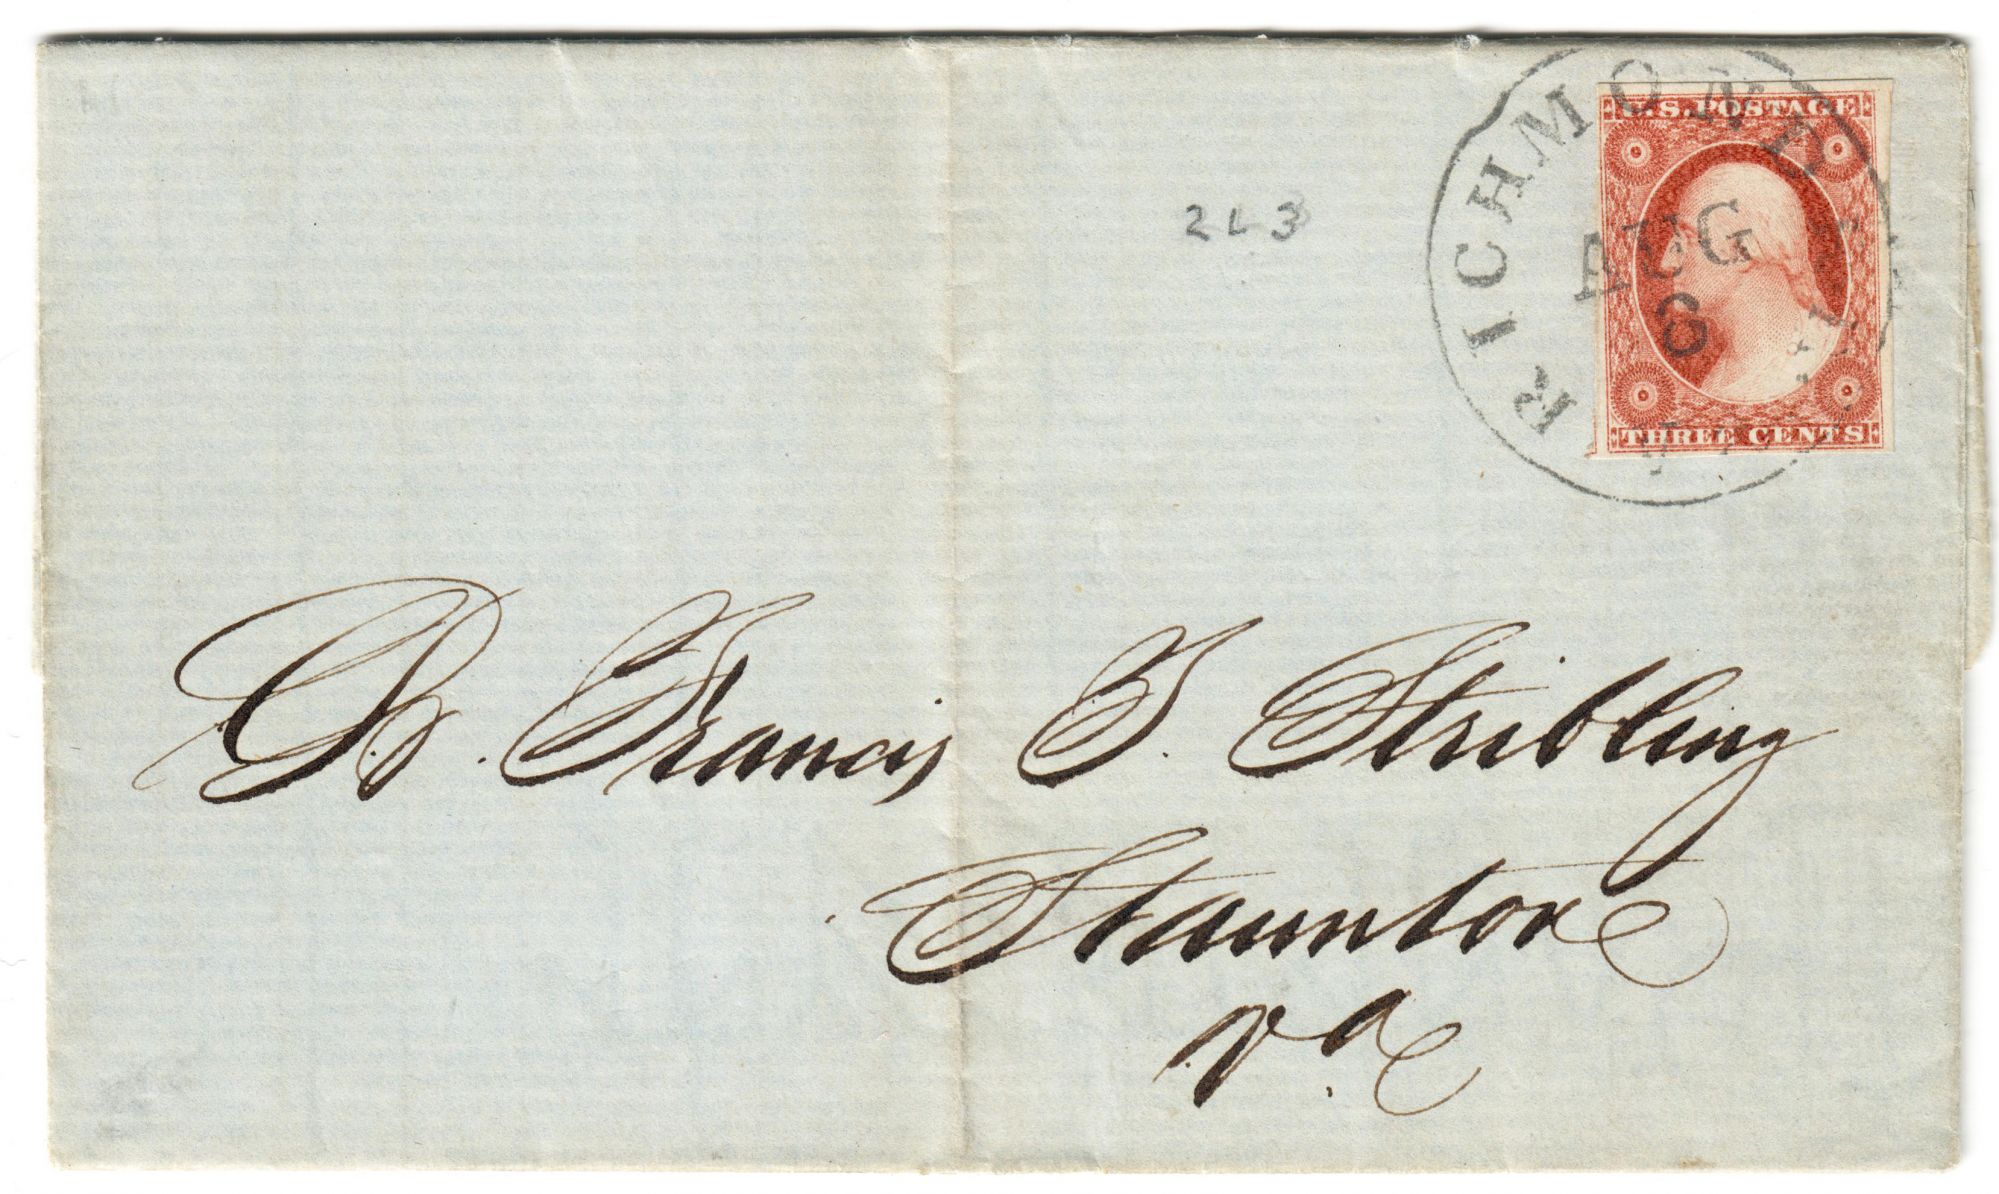 RICHMOND Va.
AUG
8
U.S. POSTAGE
THREE CENTS
2L3
Dr. Francis T. Stribling
Staunton
Va